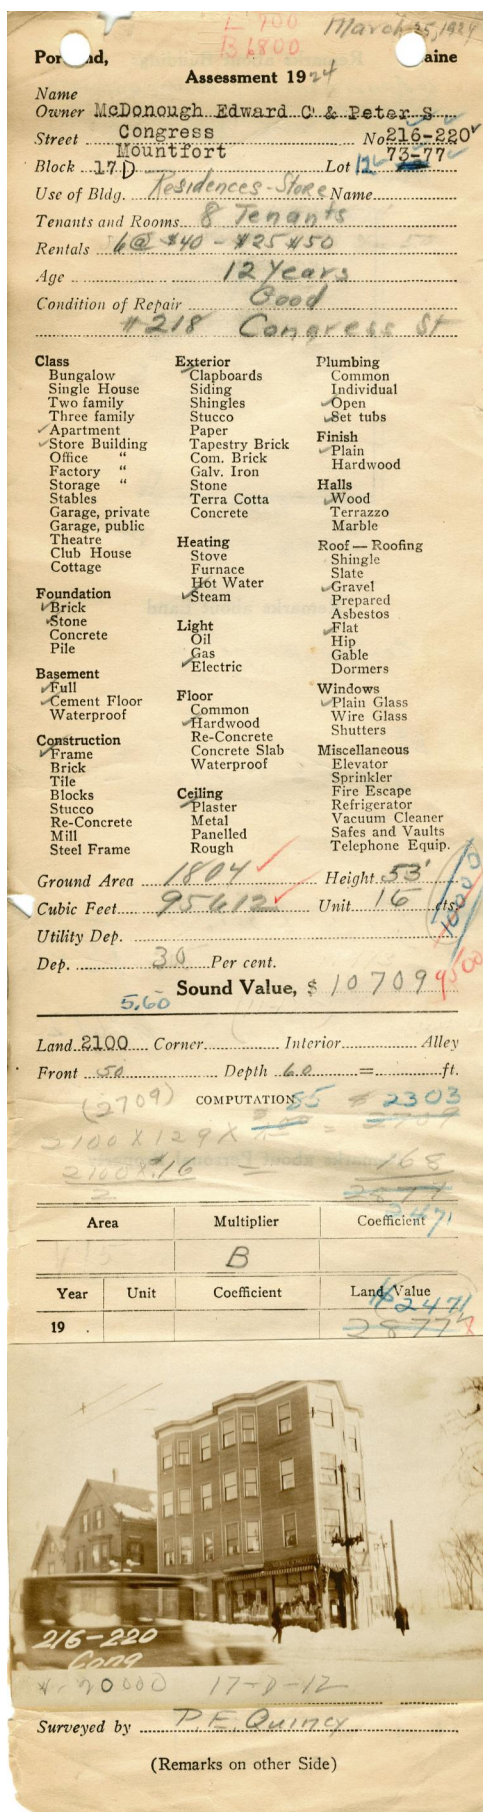 L 900
B 6800
March 25, 1924
Portland, Maine
Assessment 1924
Name
Owner McDonough Edward C & Peter S
Street Congress No 216-220
Mountfort 73-77
Block 17D Lot 12
Use of Bldg. Residences-Store Name
Tenants and Rooms 8 Tenants
Rentals 6@ $40 - $25 $150
Age 12 Years
Condition of Repair Good
#218 Congress St
Class
Bungalow
Single House
Two family
Three family
Apartment
Store Building
Office "
Factory "
Storage "
Stables
Garage, private
Garage, public
Theatre
Club House
Cottage
Foundation
Brick
Stone
Concrete
Pile
Basement
Full
Cement Floor
Waterproof
Construction
Frame
Brick
Tile
Blocks
Stucco
Re-Concrete
Mill
Steel Frame
Exterior
Clapboards
Siding
Shingles
Stucco
Paper
Tapestry Brick
Com. Brick
Galv. Iron
Stone
Terra Cotta
Concrete
Heating
Stove
Furnace
Hot Water
Steam
Light
Oil
Gas
Electric
Floor
Common
Hardwood
Re-Concrete
Concrete Slab
Waterproof
Ceiling
Plaster
Metal
Panelled
Rough
Plumbing
Common
Individual
Open
Set tubs
Finish
Plain
Hardwood
Halls
Wood
Terrazzo
Marble
Roof — Roofing
Shingle
Slate
Gravel
Prepared
Asbestos
Flat
Hip
Gable
Dormers
Windows
Plain Glass
Wire Glass
Shutters
Miscellaneous
Elevator
Sprinkler
Fire Escape
Refrigerator
Vacuum Cleaner
Safes and Vaults
Telephone Equip.
Ground Area 1804 Height 53'
Cubic Feet 95612 Unit 16 cts.
10000
Utility Dep.
Dep. 30 Per cent.
9500
Sound Value, $ 10709
5.60
Land 2100 Corner Interior Alley
Front 50 Depth 60 = ft.
(2709) COMPUTATION 55 $ 2303
2100 X 129 X = 2709
2100 X .16 = 168
2 2877
2471
Area Multiplier Coefficient
B
Year Unit Coefficient Land Value
$2471
19 2877
216-220
Cong
20000 17-D-12
Surveyed by P.E. Quincy
(Remarks on other Side)